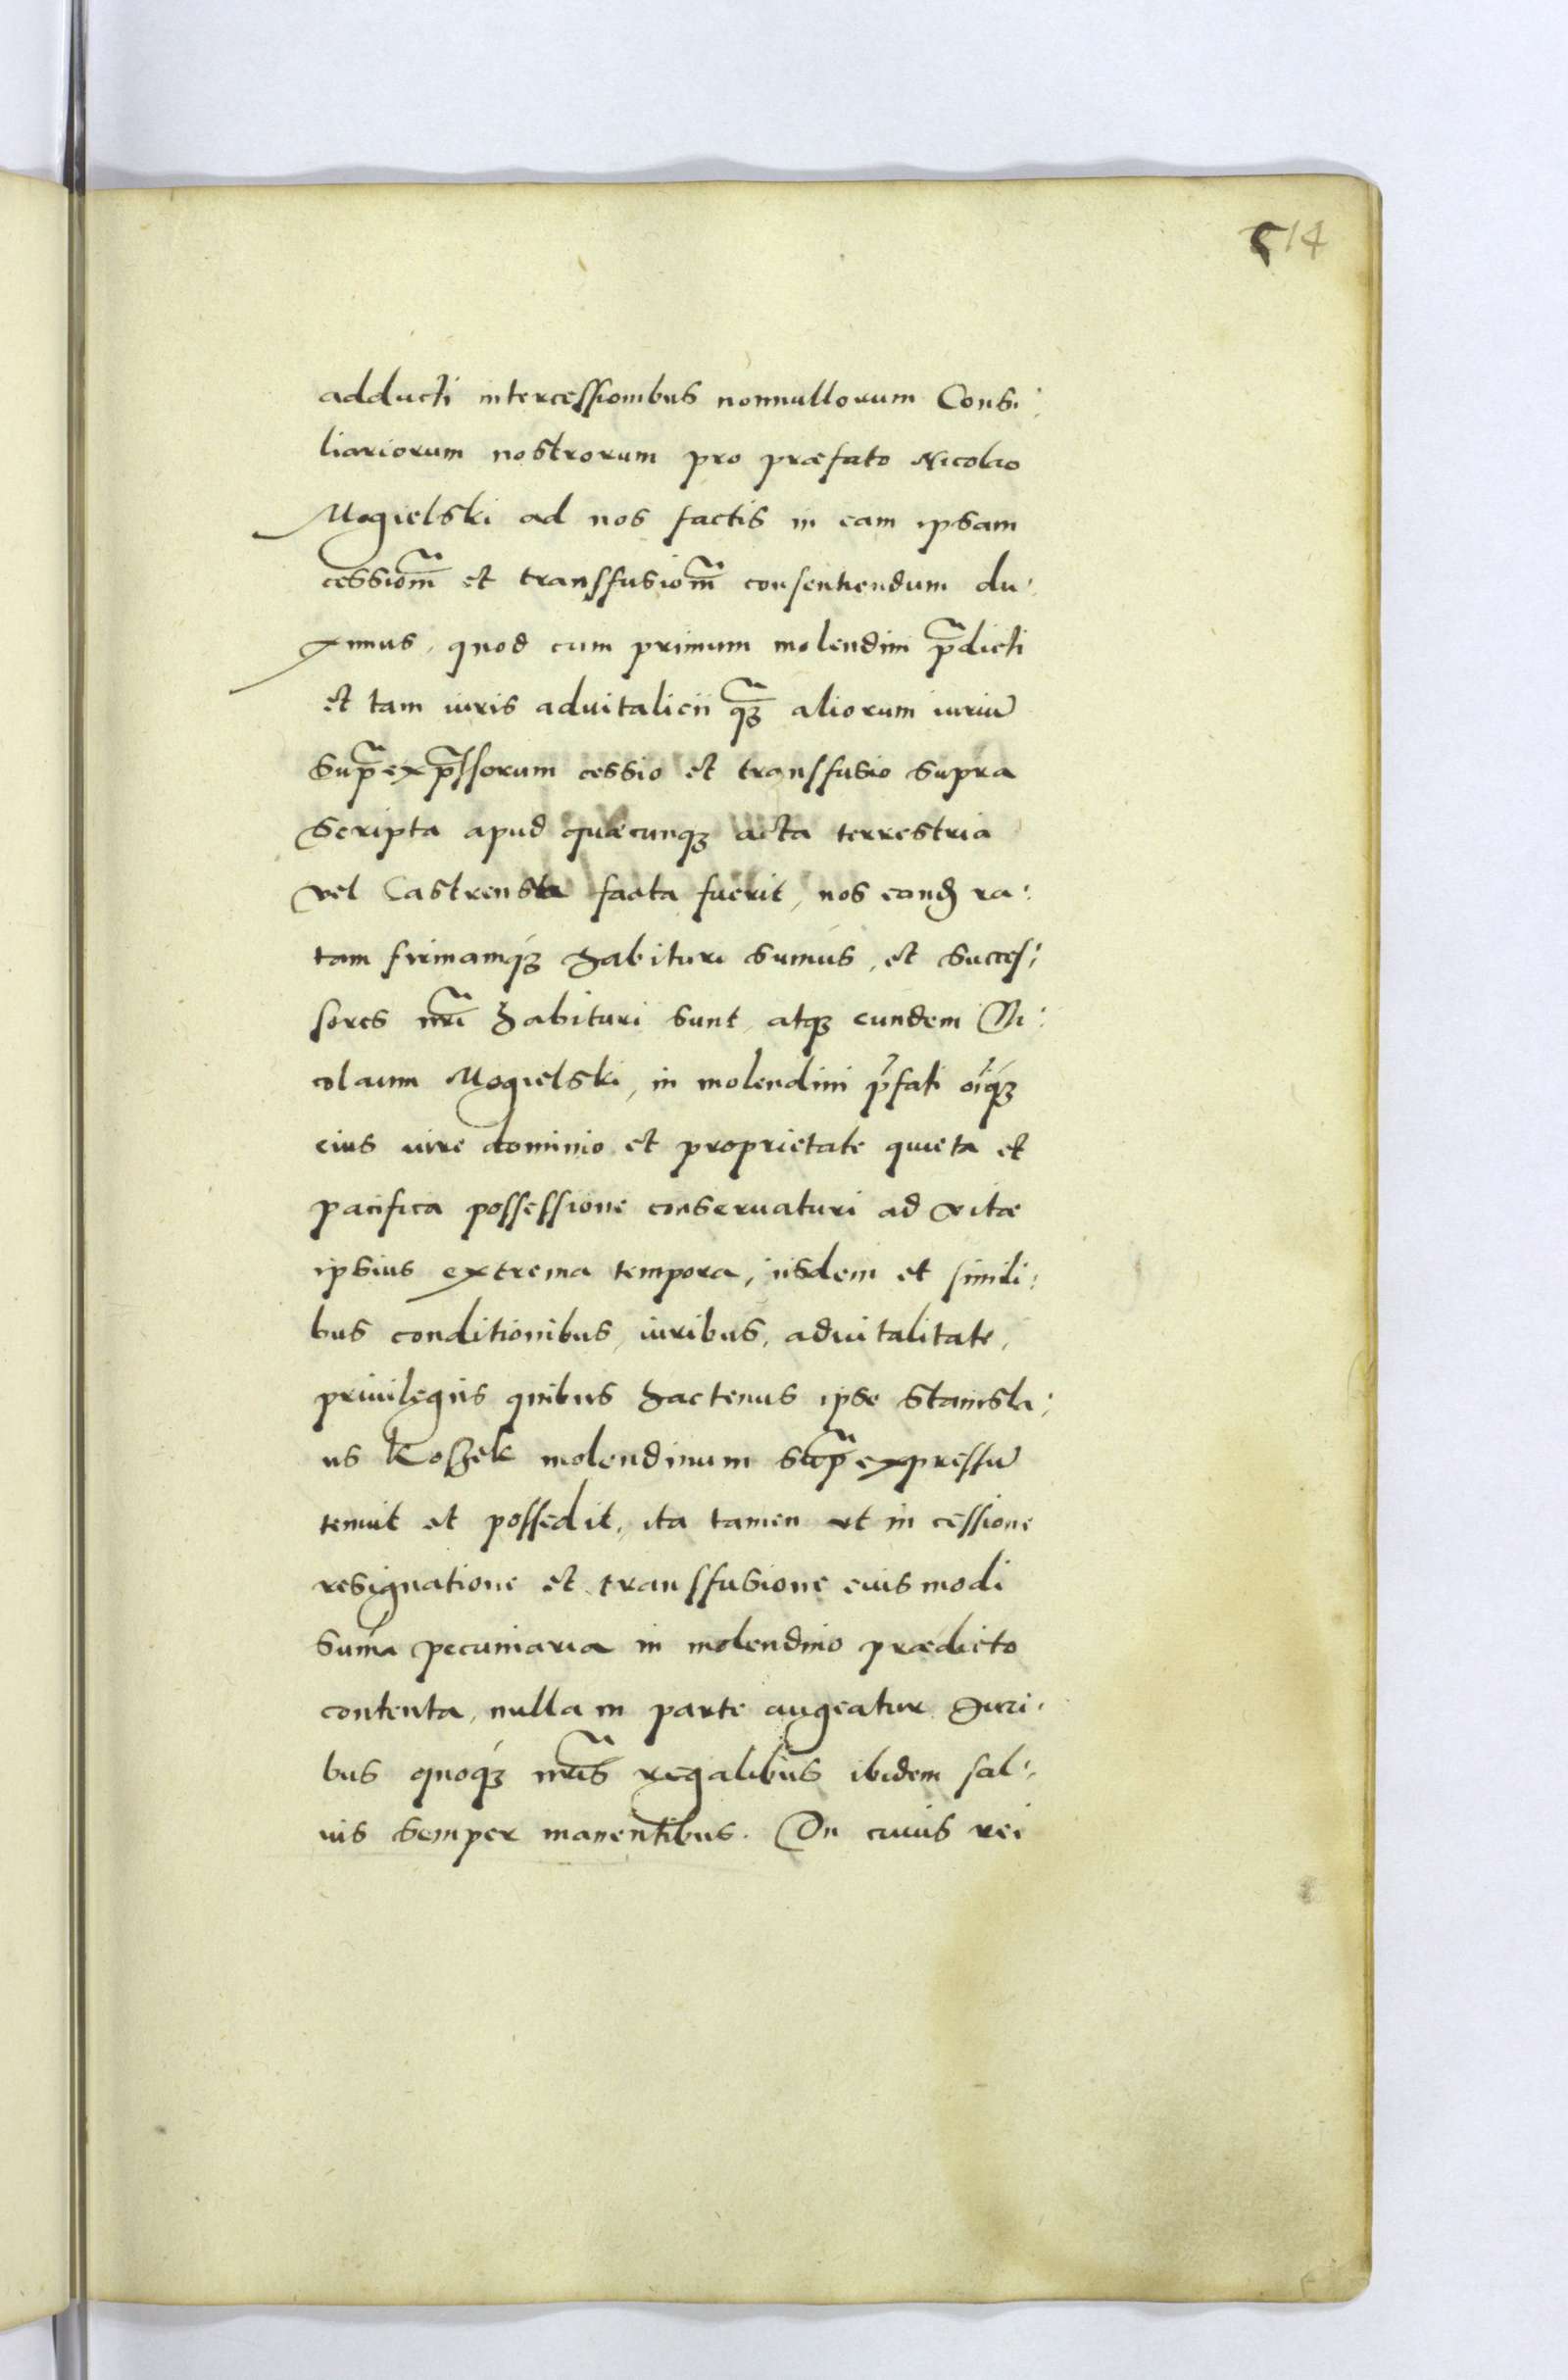 514
adducti intercessionibus nonnullorum Consi:
liariorum nostrorum pro præfato Nicolao
Mogielski ad nos factis in eam ipsam
cessiom̃ et transfusiom̃ consentiendum du:
ximus, quod cum primum molendini p̃dicti
et tam iuris aduitalicii q̃ꝫ aliorum iuriũ
sup̃exp̃ssorum cessio et transfusio supra
scripta apud quæcunqꝫ acta terrestria
vel Castrensia facta fuerit, nos eandẽ ra:
tam firmamqꝫ habituri sumus, et succes:
sores nr̃i habituri sunt, atqꝫ eundem Ni:
colaum Mogielski, in molendini p̃fati oĩqꝫ
eius iure dominio et proprietate quieta et
pacifica possessione conseruaturi ad vitæ
ipsius extrema tempora, iisdem et simili:
bus conditionibus, iuribus, aduitalitate,
priuilegiis quibus hactenus ipse Stanisla:
us Koszek molendinum sup̃expressũ
tenuit et possedit, ita tamen vt in cessione
resignatione et transfusione eiusmodi
sum̃a pecuniaria in molendino prædicto
contenta, nulla in parte augeatur Juri:
bus quoqꝫ nr̃is regalibus ibidem sal:
uis semper manentibus. In cuius rei